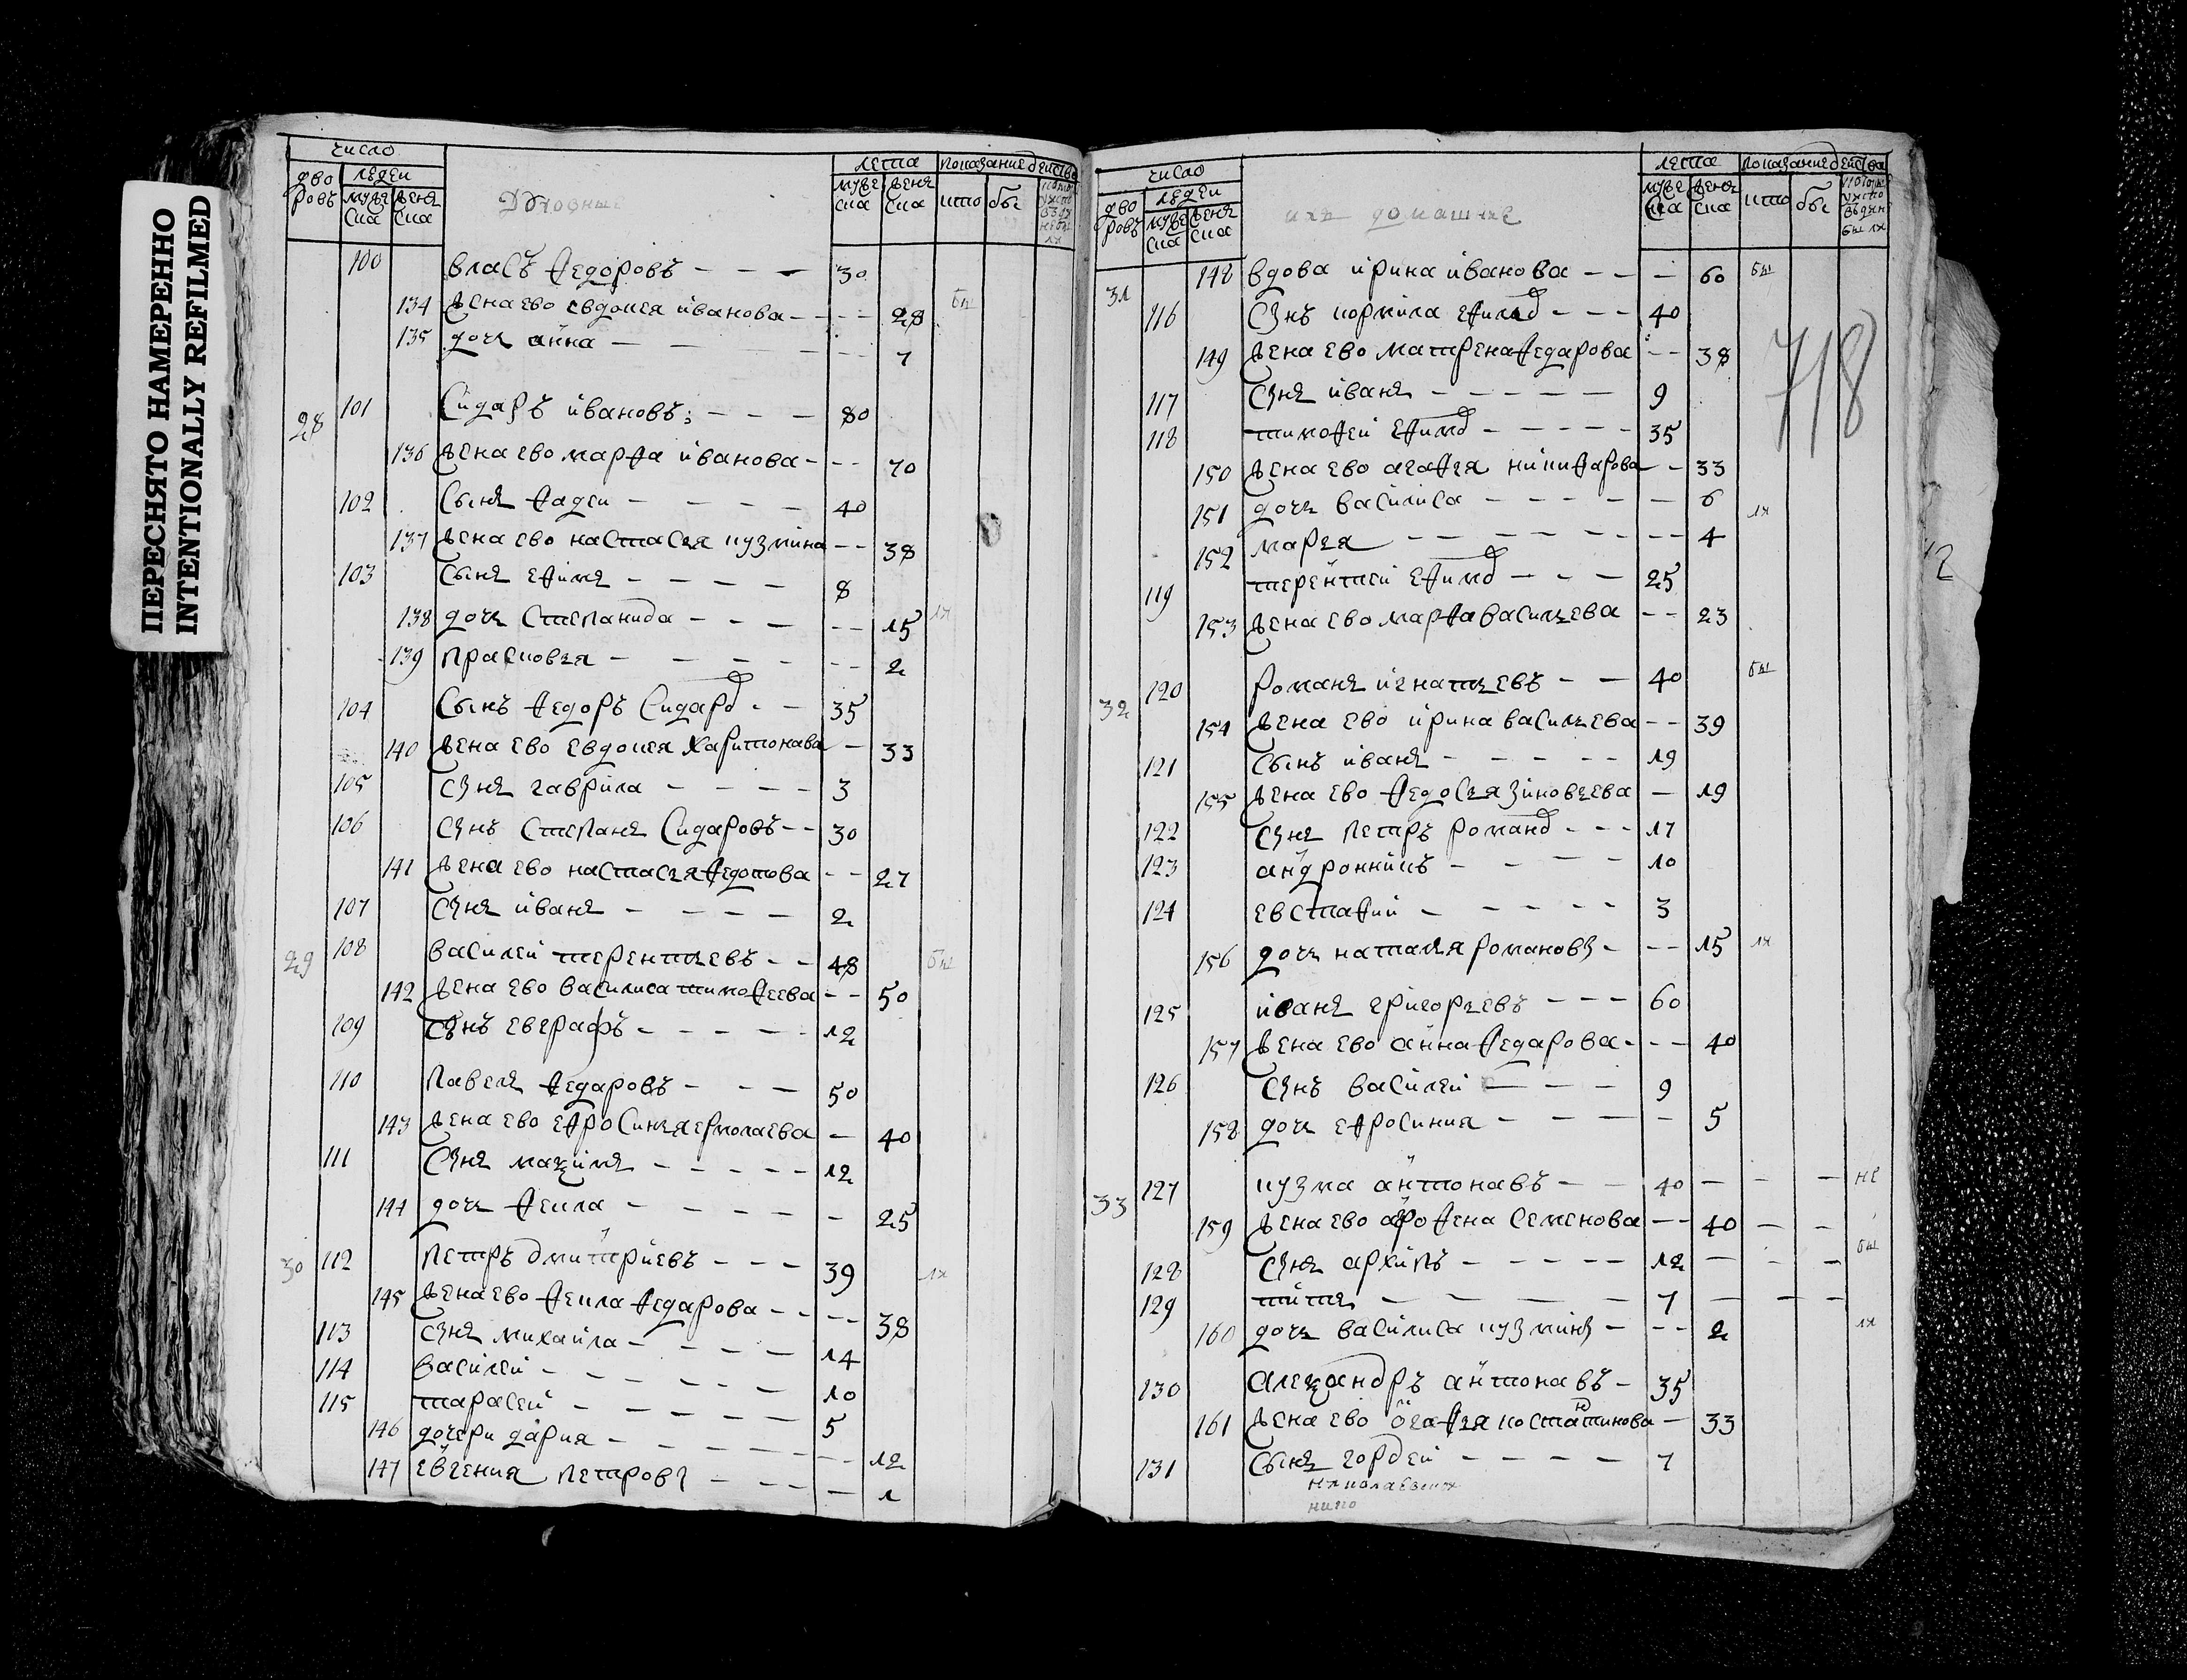 ПЕРЕСНЯТО НАМЕРЕННО
INTENTIONALLY REFILMED
число лета показание действа
дво ровъ людеи мужеска женска Духовные мужеска женска кто бы
100 власъ ѳедоровъ - - - 30
134 жена ево евдокея иванова - - - - 28 бы
135 дочь анна - - - - 7
28 101 Сидаръ ивановъ: - - - 80
136 жена ево марѳа иванова - - - 70
102 Сынъ ѳадеи - - - - 40
137 жена ево настасья кузмина - - 38
103 Сынъ еѳимъ - - - - 8
138 дочь Степанида - - - - - 15 ли
139 прасковья - - - - - - 2
104 Сынъ ѳедоръ Сидаро - - 35
140 жена ево евдокея харитонава - 33
105 Сынъ гаврила - - - - 3
106 Сынъ Степанъ Сидаровъ - - 30
141 жена ево настасья ѳедотова - - 27
107 Сынъ иванъ - - - - 2
29 108 василеи терентьевъ - - 48 бы
142 жена ево василиса тимоѳеева - - 50
109 Сынъ евграфъ - - - - - 12
110 Павелъ ѳедаровъ - - - 50
143 жена ево еѳросинья ермолаева - 40
111 Сынъ маѯимъ - - - - - 12
144 дочь ѳекла - - - - - - 25
30 112 Петръ дмитриевъ - - - 39 ли
145 жена ево ѳекла ѳедарова - - - - 38
113 Сынъ михаила - - - - 14
114 василеи - - - - - - 10
115 тарасеи - - - - - 5
146 дочери дария - - - - - - - 12
147 евгения петровы - - - - 1
число лета показание действа
дво ровъ людеи мужеска женска ихъ домашние мужеска женска кто бы
31 148 вдова ирина иванова - - - 60 бы
116 Сынъ кормила еѳимо - - - 40
149 жена ево матрена ѳедарова - - 38
117 Сынъ иванъ - - - - - - 9
118 тимоѳеи еѳимо - - - - - 35
150 жена ево агаѳья никиѳарова - - 33
151 дочь василиса - - - - - 6 ли
152 марья - - - - - - - - 4
119 терентеи еѳимо - - - 25
153 жена ево марѳа васильева - - 23
32 120 романъ игнатьевъ - - 40 бы
154 жена ево ирина васильева - - 39
121 Сынъ иванъ - - - - - 19
155 жена ево ѳедосья зиновьева - 19
122 Сынъ петръ романо - - - 17
123 андроникъ - - - - 10
124 евстаѳии - - - - - 3
156 дочь наталья романовы - - - 15 ли
125 иванъ григорьевъ - - - 60
157 жена ево анна ѳедарова - - - 40
126 Сынъ василеи - - - 9
158 дочь еѳросиния - - - - - 5
33 127 кузма антонавъ - - 40 - - - не
159 жена ево аѳроѳена семенова - - 40 - -
128 Сынъ архипъ - - - - - 12 - - - бы
129 титъ - - - - 7 - - -
160 дочь василиса кузмины - - - 2 ли
130 Алеѯандръ антонавъ - 35
161 жена ево огаѳья костантинова - 33
131 Сынъ гордеи - - - - - 7
718